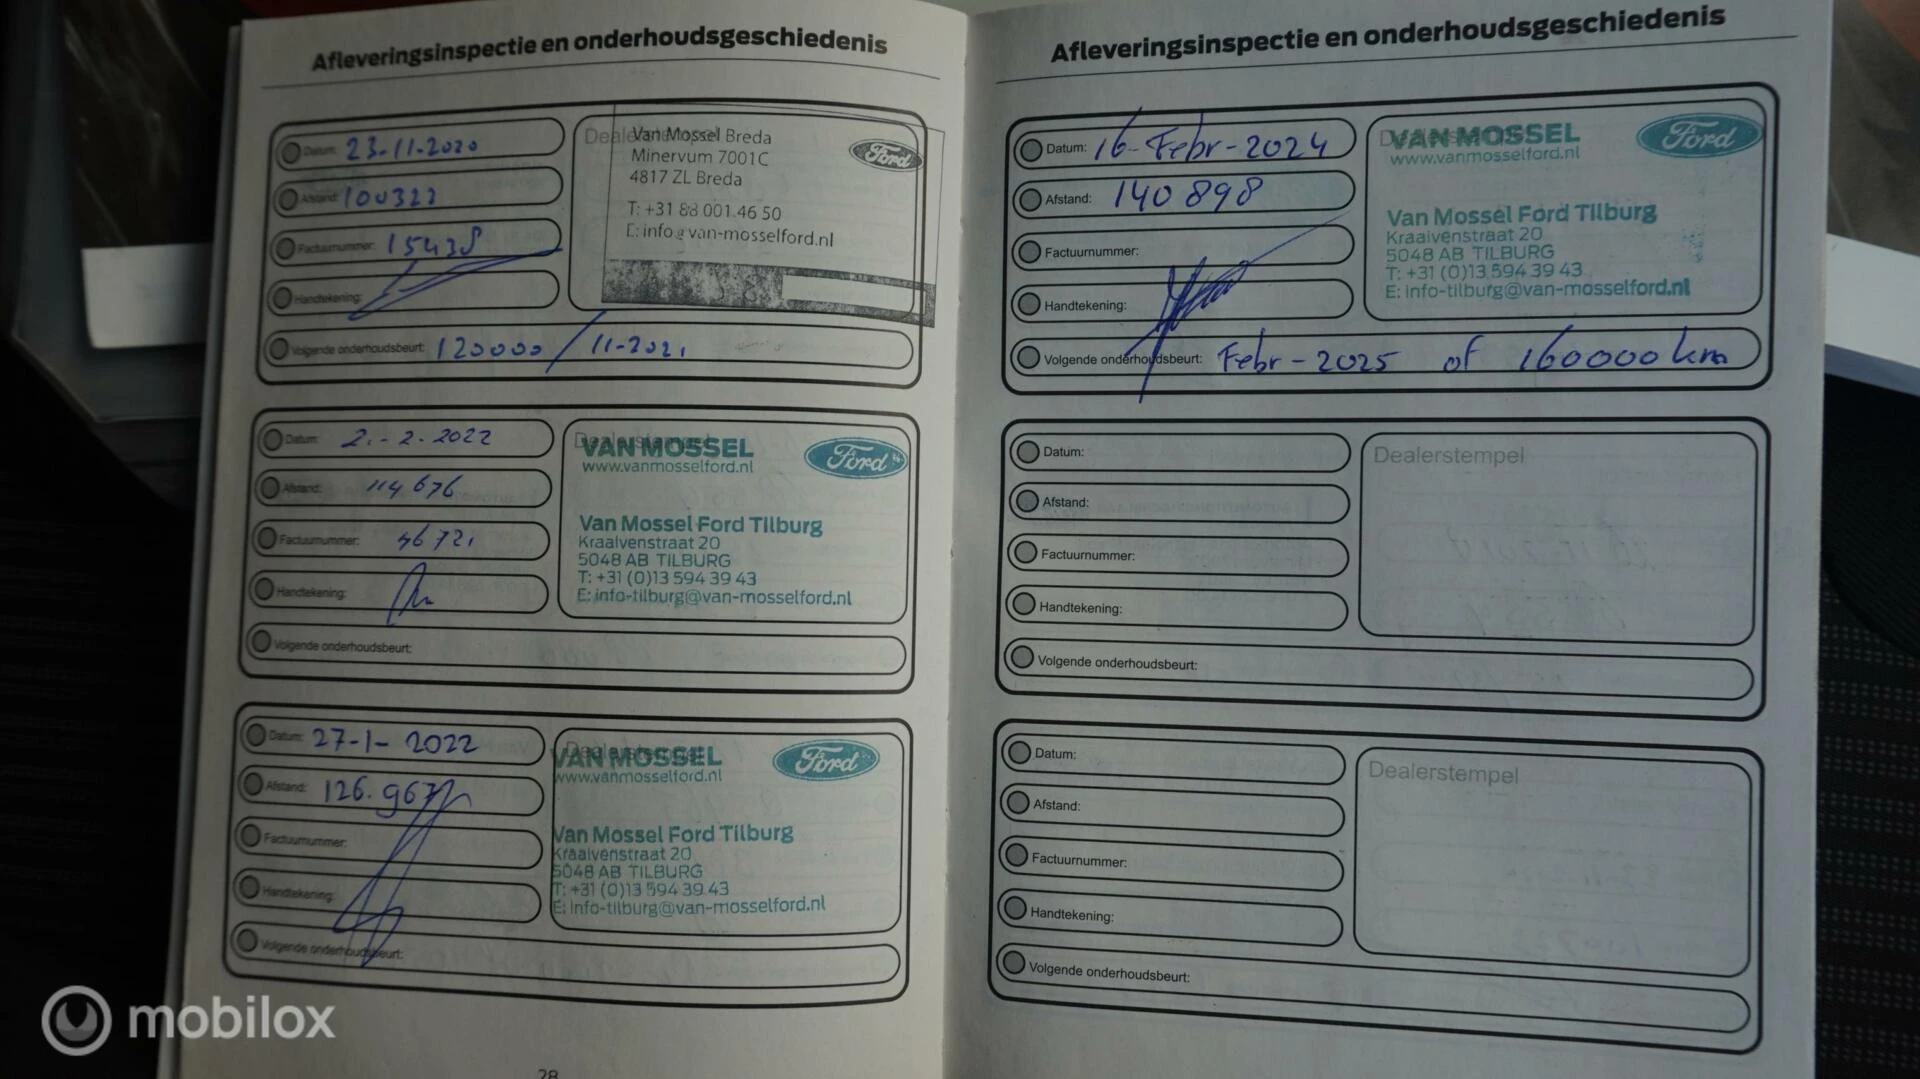 Afleveringsinspectie en onderhoudsgeschiedenis
Datum: 23-11-2020
Afstand: 100322
Factuurnummer: 15438
Handtekening:
Volgende onderhoudsbeurt: 120000 / 11-2021
Van Mossel Breda
Minervum 7001C
4817 ZL Breda
T: +31 88 001 46 50
E: info@van-mosselford.nl
Ford
Datum: 2-2-2022
Afstand: 114676
Factuurnummer: 46721
Handtekening:
Volgende onderhoudsbeurt:
Dealerstempel
VAN MOSSEL
www.vanmosselford.nl
Ford
Van Mossel Ford Tilburg
Kraaivenstraat 20
5048 AB TILBURG
T: +31 (0)13 594 39 43
E: info-tilburg@van-mosselford.nl
Datum: 27-1-2022
Afstand: 126.967
Factuurnummer:
Handtekening:
Volgende onderhoudsbeurt:
Dealerstempel
VAN MOSSEL
www.vanmosselford.nl
Ford
Van Mossel Ford Tilburg
Kraaivenstraat 20
5048 AB TILBURG
T: +31 (0)13 594 39 43
E: info-tilburg@van-mosselford.nl
28
Afleveringsinspectie en onderhoudsgeschiedenis
Datum: 16-Febr-2024
Afstand: 140898
Factuurnummer:
Handtekening:
Volgende onderhoudsbeurt: Febr-2025 of 160000 km
VAN MOSSEL
www.vanmosselford.nl
Ford
Van Mossel Ford Tilburg
Kraaivenstraat 20
5048 AB TILBURG
T: +31 (0)13 594 39 43
E: info-tilburg@van-mosselford.nl
Datum:
Afstand:
Factuurnummer:
Handtekening:
Volgende onderhoudsbeurt:
Dealerstempel
Datum:
Afstand:
Factuurnummer:
Handtekening:
Volgende onderhoudsbeurt:
Dealerstempel
mobilox